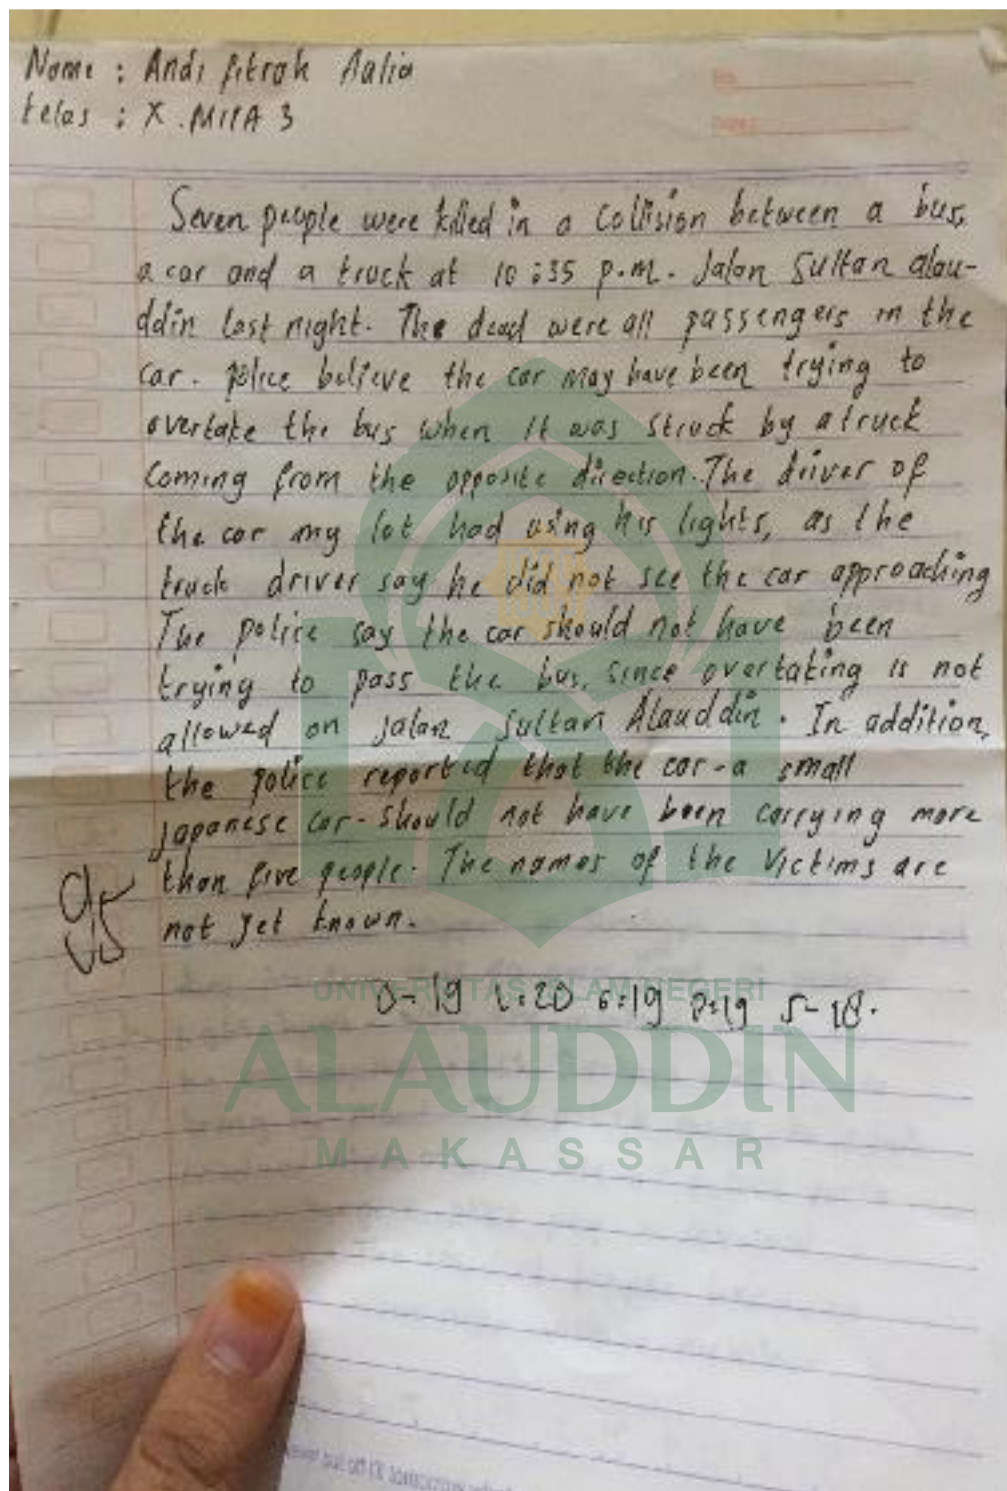 Name : Andi fitrah Aalia
kelas : X . MIPA 3
Seven people were killed in a Collision between a bus,
a car and a truck at 10 : 35 p.m. Jalan Sultan alau-
ddin last night. The dead were all passengers in the
car. police believe the car may have been trying to
overtake the bus when it was struck by a truck
Coming from the opposite direction. The driver of
the car my lot had using his lights, as the
truck driver say he did not see the car approaching
The police say the car should not have been
trying to pass the bus, since overtaking is not
allowed on jalan Sultan Alauddin. In addition,
the police reported that the car - a small
japanese car - should not have been carrying more
than five people. The names of the Victims are
95
not yet known.
UNIVERSITAS ISLAM NEGERI
O- 19 L: 20 G: 19 P: 19 S- 18.
ALAUDDIN
MAKASSAR